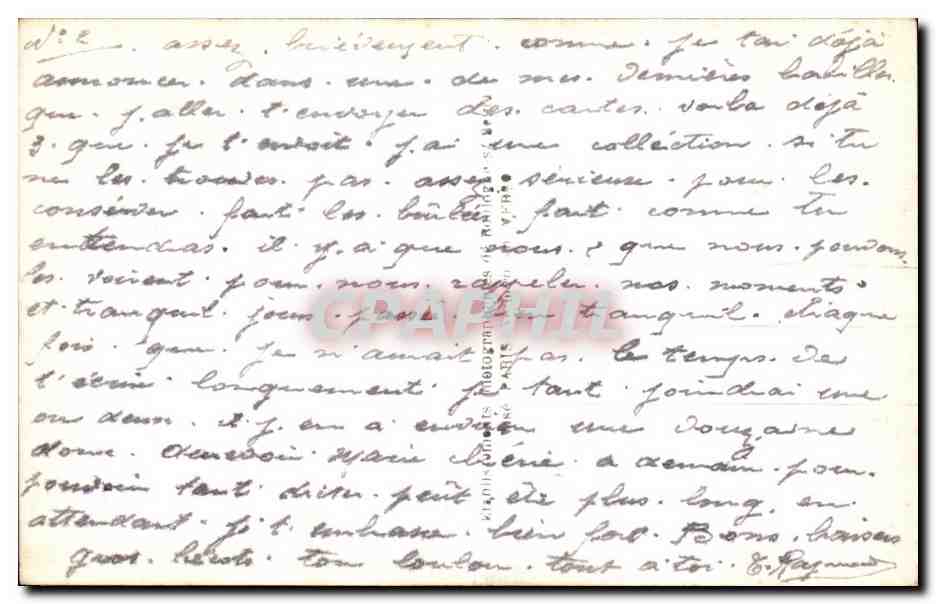 N° 2. assez brièvement. comme. je tai déjà
annoncer. dans. une. de mes. dernières babilles.
que. j. aller. t. envoyer des. cartes. voila déjà
3. que. je t'envoit. j. ai une collection. si tu
ne les. trouves. pas. assez sérieuse. pour les.
conserver. fait les. brûler fait. comme tu
entendras. il. y. a. que nous. que nous. pouvons.
les. voirent. pour. nous. rappeler. nos. moments.
et tranquil. jours. passé. bien tranquil. chaque
fois. que. je n'aurait pas. le temps. de
t'écrire longuement je tant joindrai une
ou deux. il y. en a environ une douzaine
donc. Marie chérie. a demain. pour.
pouvoir tant driter. peût être plus. long, en
attendant. je t. embrasse. bien fort. Bons. baisers
gros. bécots. ton loulou. tout à toi. Raymond
CPARPHIL
Etablissements Photographiques
PARIS